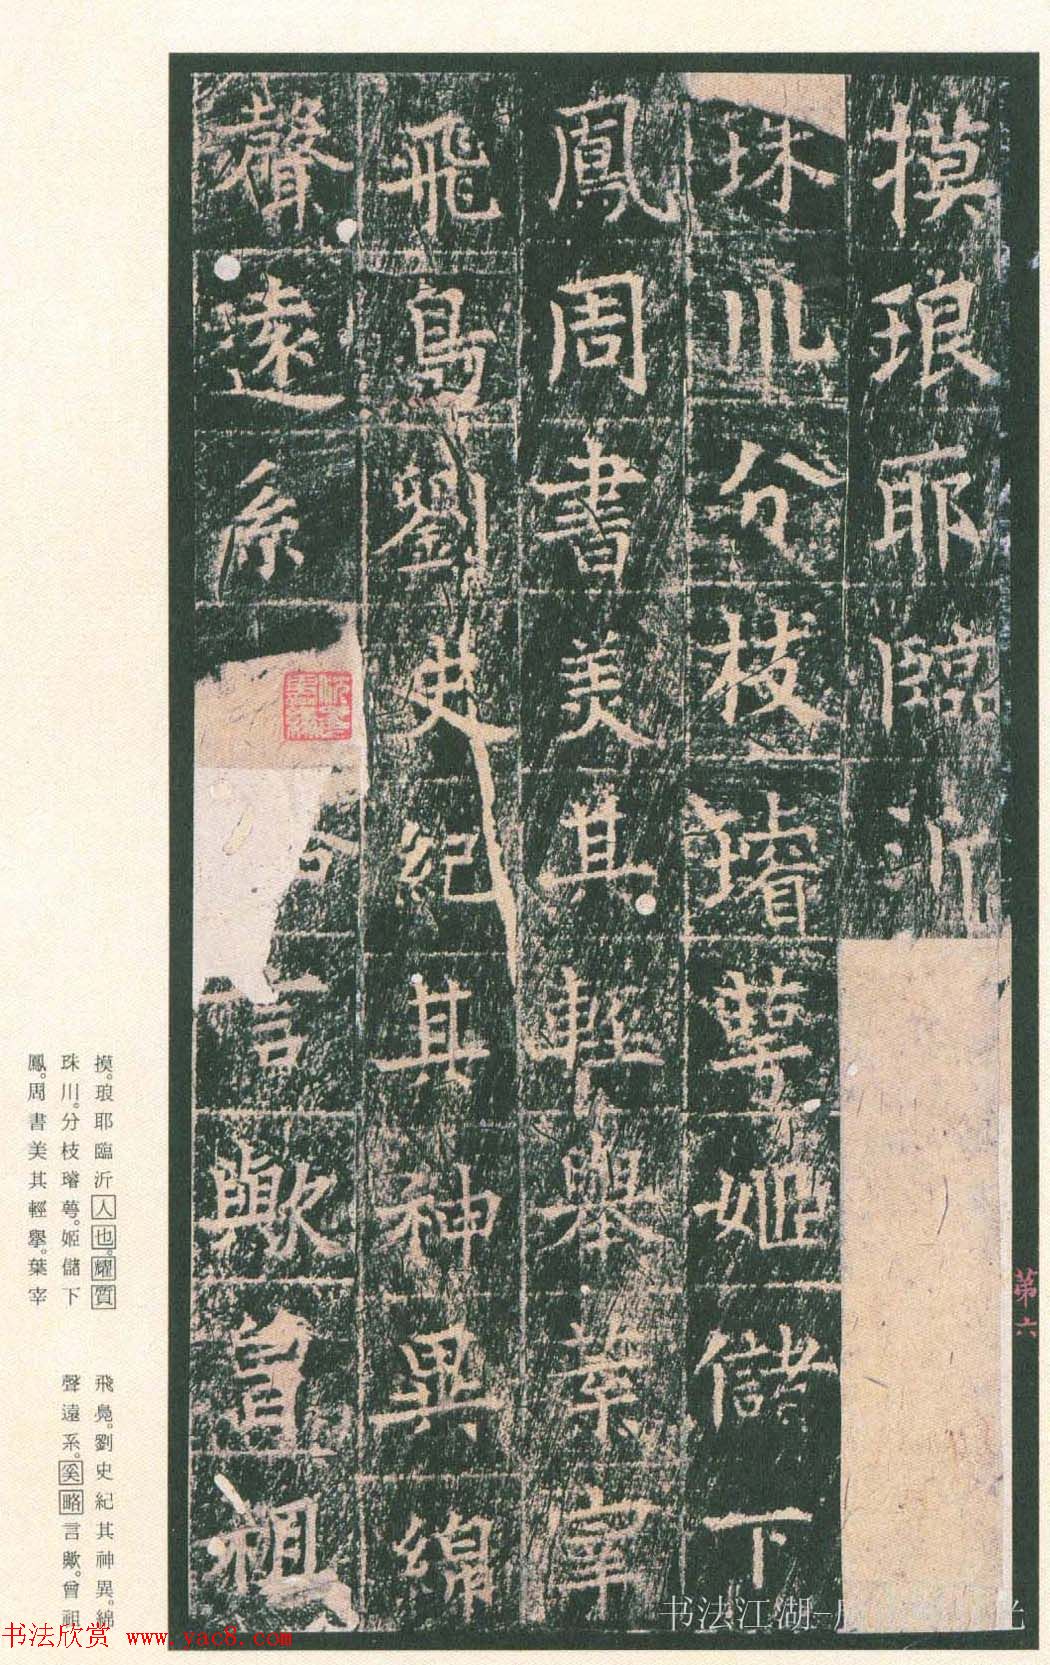 摸琅耶臨沂
珠川分枝璿萼姬儲下
鳳周書美其輕舉葉宰
飛鳧劉史紀其神異綿
聲遠系略言歟曾祖
第六
摸。琅耶臨沂人也。耀質
珠川。分枝璿萼。姬儲下
鳳。周書美其輕擧。葉宰
飛鳧。劉史紀其神異。綿
聲遠系。奚略言歟。曾祖
书法欣赏 www.yac8.com
书法江湖